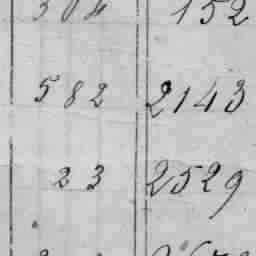 304 152
582 2143
23 2529